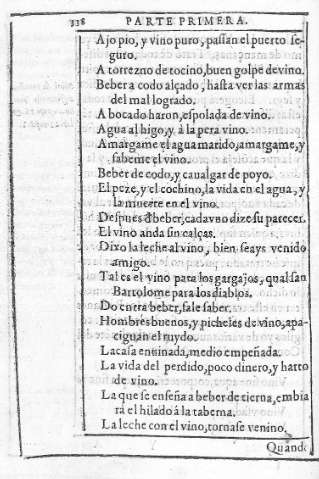 118 PARTE PRIMERA.
Ajo pio, y vino puro, passan el puerto se-
guro.
A torrezno de tocino, buen golpe de vino.
Beber a codo alçado, hasta ver las armas
del mal logrado.
A bocado haron, espolada de vino.
Agua al higo, y à la pera vino.
Amargame el agua marido, amargame, y
sabeme el vino.
Beber de codo, y caualgar de poyo.
El peze, y el cochino, la vida en el agua, y
la muerte en el vino.
Despues d beber, cada vno dize su parecer.
El vino anda sin calças.
Dixo la leche al vino, bien seays venido
amigo.
Tal es el vino para los gargajos, qual san
Bartolome para los diablos.
Do entra beber, sale saber.
Hombres buenos, y picheles de vino, apa-
ciguan el ruydo.
La casa envinada, medio empeñada.
La vida del perdido, poco dinero, y harto
de vino.
La que se enseña a beber de tierna, embia
rà el hilado à la taberna.
La leche con el vino, tornase venino.
Quando